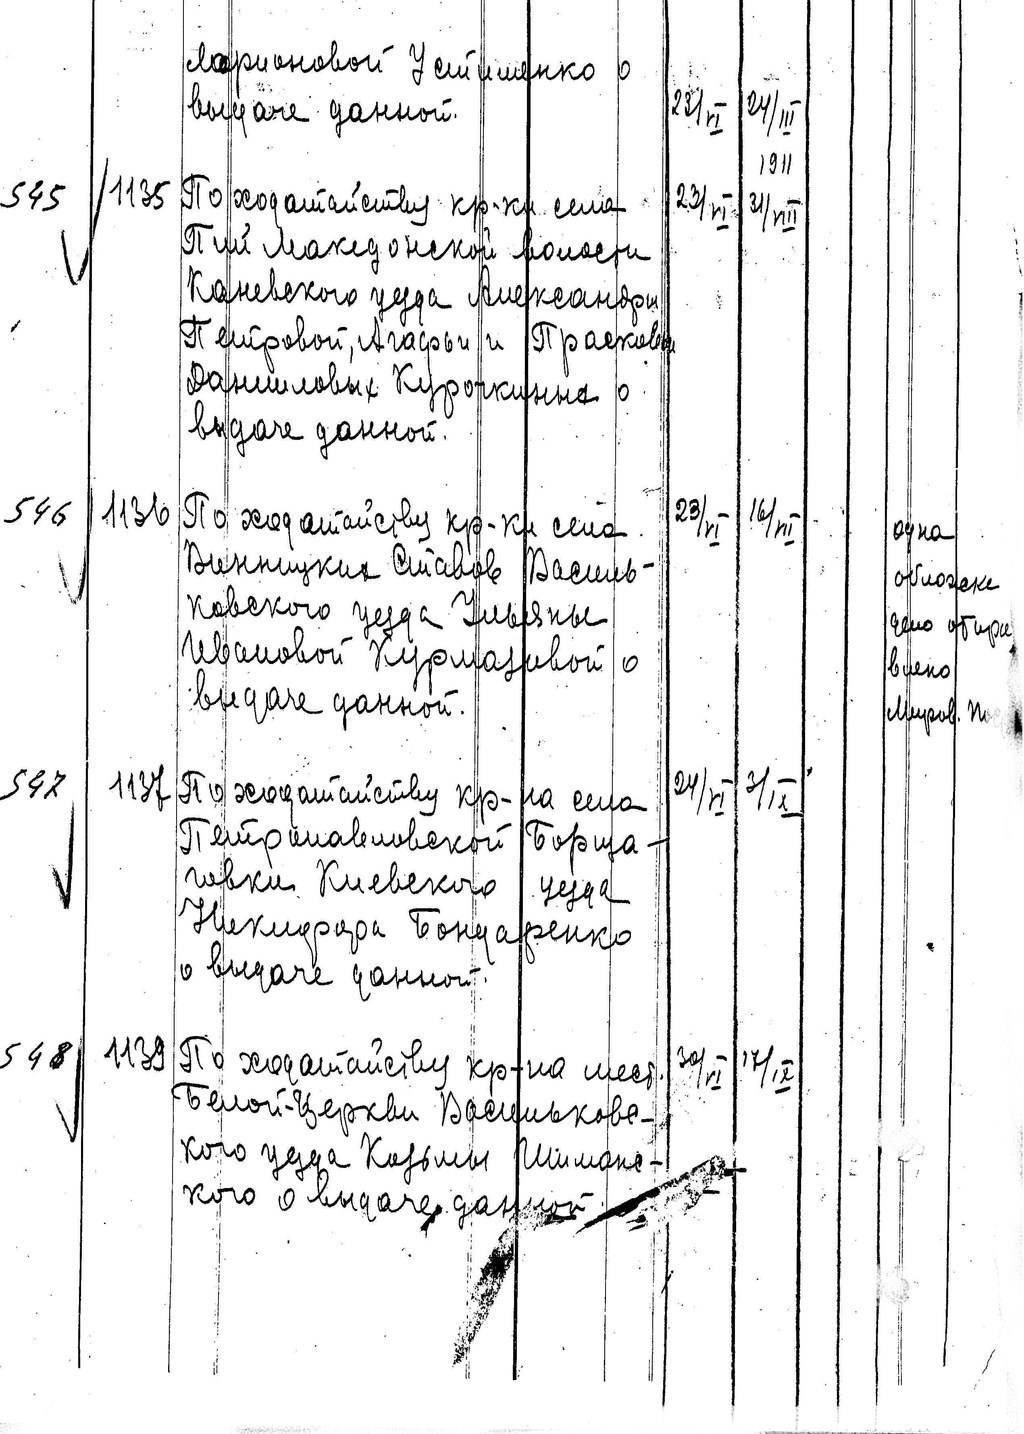 Ларионовой Устименко о
выдаче данной. 23/VI 24/III
1911
545 1135 По ходатайству кр-ки села 23/VI 31/VIII
Пии Македонской волости
Каневского уезда Александры
Петровой, Агафьи и Прасковьи
Даниловых Курочкиных о
выдаче данной.
546 1136 По ходатайству кр-ки села 23/VI 16/VII одна
Винницких Ставов Василь- обложке
ковского уезда Ульяны дело отпра
Ивановой Курмазивой о влено
выдаче данной. Миров.
547 1137 По ходатайству кр-на села 24/VI 3/IX
Петропавловской Борща-
говки Киевского уезда
Никифора Бондаренко
о выдаче данной.
548 1139 По ходатайству кр-на мест. 30/VI 17/IX
Белой-Церкви Васильковс-
кого уезда Козьмы Шиманс-
кого о выдаче данной.